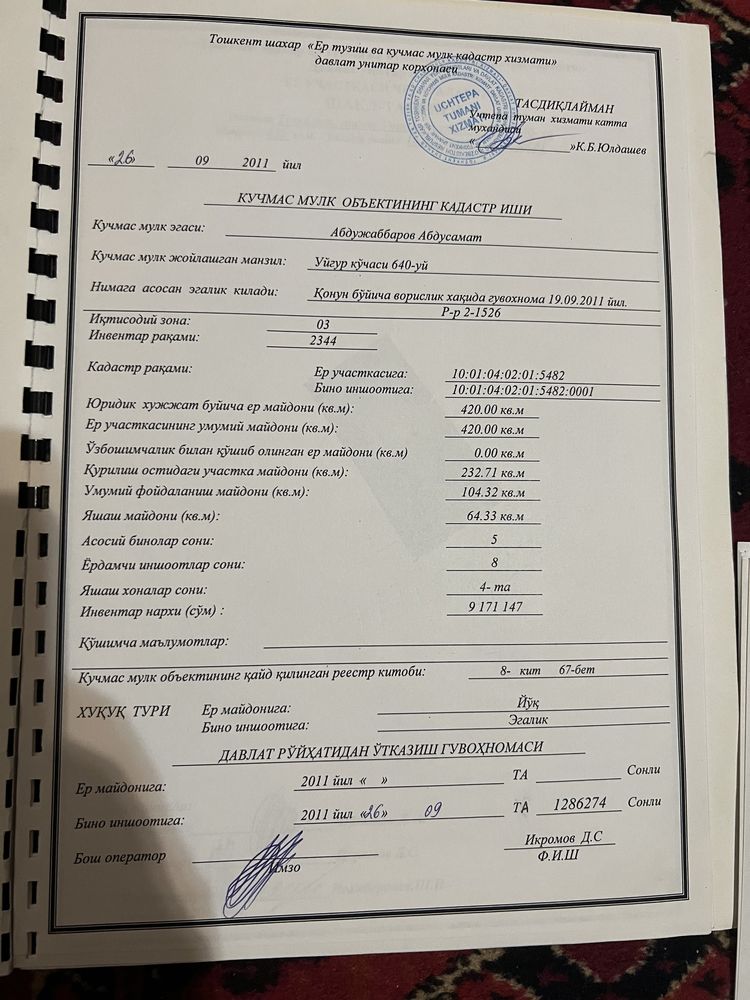 Тошкент шахар «Ер тузиш ва кучмас мулк кадастр хизмати»
давлат унитар корхонаси
UCHTEPA
TUMANI
XIZMATI
ТАСДИҚЛАЙМАН
Учтепа туман хизмати катта
мухандиси
«__________»К.Б.Юлдашев
«26» 09 2011 йил
КУЧМАС МУЛК ОБЪЕКТИНИНГ КАДАСТР ИШИ
Кучмас мулк эгаси: Абдужаббаров Абдусамат
Кучмас мулк жойлашган манзил: Уйгур кўчаси 640-уй
Нимага асосан эгалик килади: Қонун бўйича ворислик хақида гувохнома 19.09.2011 йил.
Р-р 2-1526
Иқтисодий зона: 03
Инвентар рақами: 2344
Кадастр рақами: Ер участкасига: 10:01:04:02:01:5482
Бино иншоотига: 10:01:04:02:01:5482:0001
Юридик хужжат буйича ер майдони (кв.м): 420.00 кв.м
Ер участкасининг умумий майдони (кв.м): 420.00 кв.м
Ўзбошимчалик билан қўшиб олинган ер майдони (кв.м) 0.00 кв.м
Қурилиш остидаги участка майдони (кв.м): 232.71 кв.м
Умумий фойдаланиш майдони (кв.м): 104.32 кв.м
Яшаш майдони (кв.м): 64.33 кв.м
Асосий бинолар сони: 5
Ёрдамчи иншоотлар сони: 8
Яшаш хоналар сони: 4- та
Инвентар нархи (сўм) : 9 171 147
Қўшимча маълумотлар:
Кучмас мулк объектининг қайд қилинган реестр китоби: 8- кит 67-бет
ХУҚУҚ ТУРИ Ер майдонига: Йўқ
Бино иншоотига: Эгалик
ДАВЛАТ РЎЙҲАТИДАН ЎТКАЗИШ ГУВОҲНОМАСИ
Ер майдонига: 2011 йил « » ТА Сонли
Бино иншоотига: 2011 йил «26» 09 ТА 1286274 Сонли
Бош оператор Икромов Д.С
Имзо Ф.И.Ш